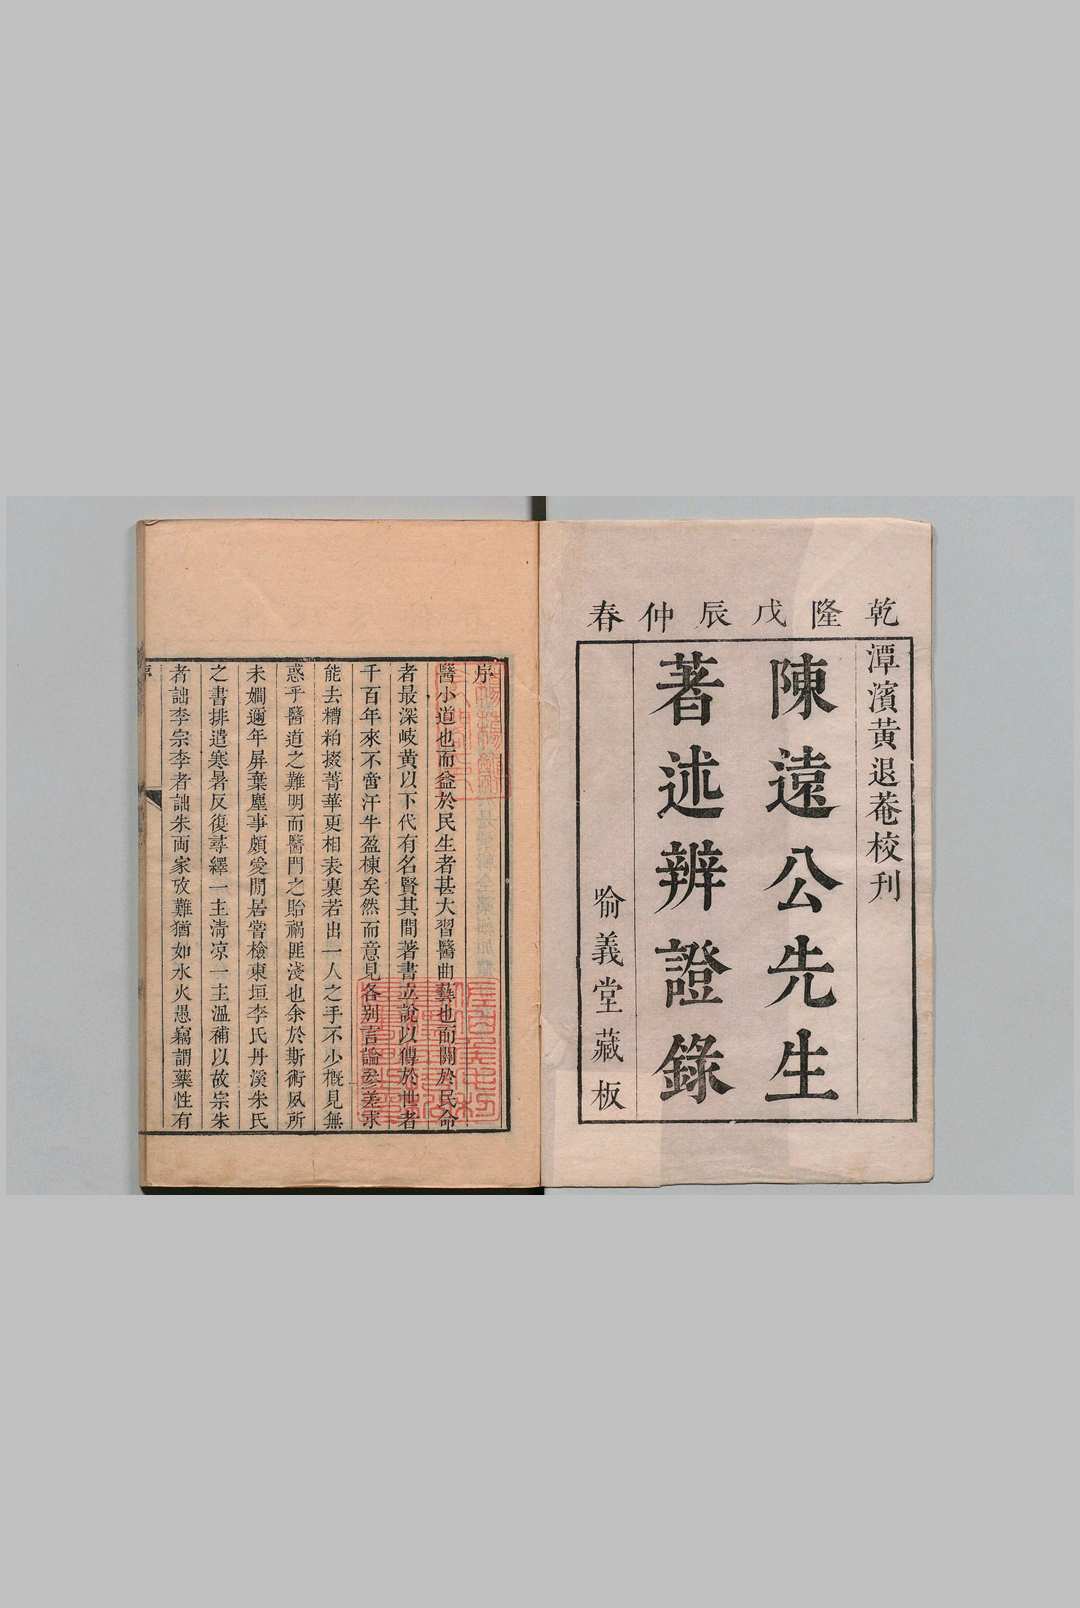 乾隆戊辰仲春
潭濱黃退菴校刋
陳遠公先生
著述辨證錄
喻義堂藏板
序
醫小道也而益於民生者甚大習醫曲藝也而關於民命
者最深岐黃以下代有名賢其間著書立說以傳於世者
千百年來不啻汗牛盈棟矣然而意見各别言論叅差求
能去糟粕掇菁華更相表裏若出一人之手不少槪見無
惑乎醫道之難明而醫門之貽禍匪淺也余於斯術夙所
未嫺邇年屏棄塵事頗愛閒居嘗檢東垣李氏丹溪朱氏
之書排遣寒暑反復尋繹一主清凉一主溫補以故宗朱
者詘李宗李者詘朱両家攷難猶如水火愚竊謂藥性有
序